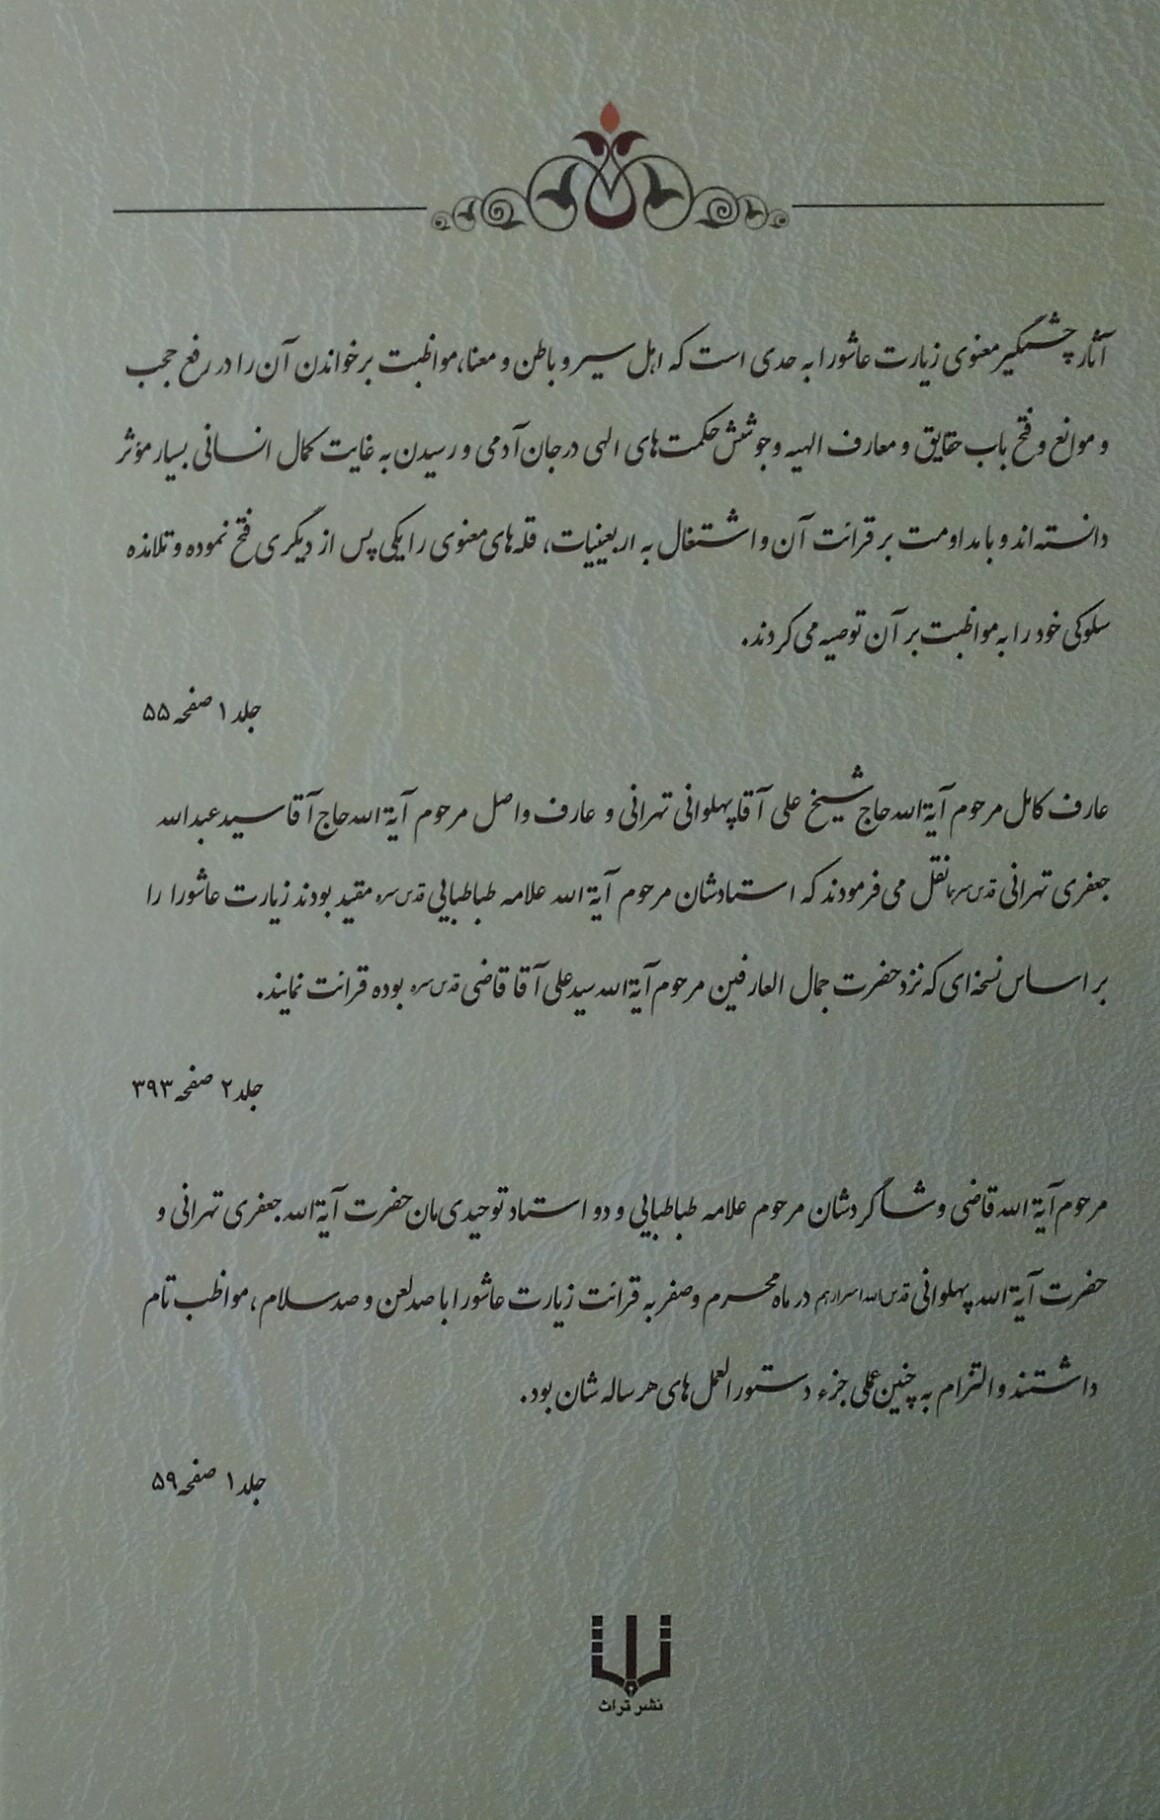 آثار چشمگیر معنوی زیارت عاشورا به حدی است که اهل سیر و باطن و معنا، مواظبت بر خواندن آن را در رفع حجب
و موانع و فتح باب حقایق و معارف الهیه و جوشش حکمت‌های الهی در جان آدمی و رسیدن به غایت کمال انسانی بسیار مؤثر
دانسته‌اند و با مداومت بر قرائت آن و اشتغال به اربعینیات، قله‌های معنوی را یکی پس از دیگری فتح نموده و تلامذه
سلوکی خود را به مواظبت بر آن توصیه می‌کردند.
جلد ۱ صفحه ۵۵
عارف کامل مرحوم آیة‌الله حاج شیخ علی آقا پهلوانی تهرانی و عارف واصل مرحوم آیة‌الله حاج آقا سید عبدالله
جعفری تهرانی قدس‌سرهما نقل می‌فرمودند که استادشان مرحوم آیة‌الله علامه طباطبایی قدس‌سره مقید بودند زیارت عاشورا را
بر اساس نسخه‌ای که نزد حضرت جمال العارفین مرحوم آیة‌الله سید علی آقا قاضی قدس‌سره بوده قرائت نمایند.
جلد ۲ صفحه ۳۹۳
مرحوم آیة‌الله قاضی و شاگردشان مرحوم علامه طباطبایی و دو استاد توحیدی‌مان حضرت آیة‌الله جعفری تهرانی و
حضرت آیة‌الله پهلوانی قدس‌الله‌اسرارهم در ماه محرم و صفر به قرائت زیارت عاشورا با صد لعن و صد سلام، مواظب تام
داشتند و التزام به چنین عملی جزء دستورالعمل‌های هر ساله‌شان بود.
جلد ۱ صفحه ۵۹
نشر تراث